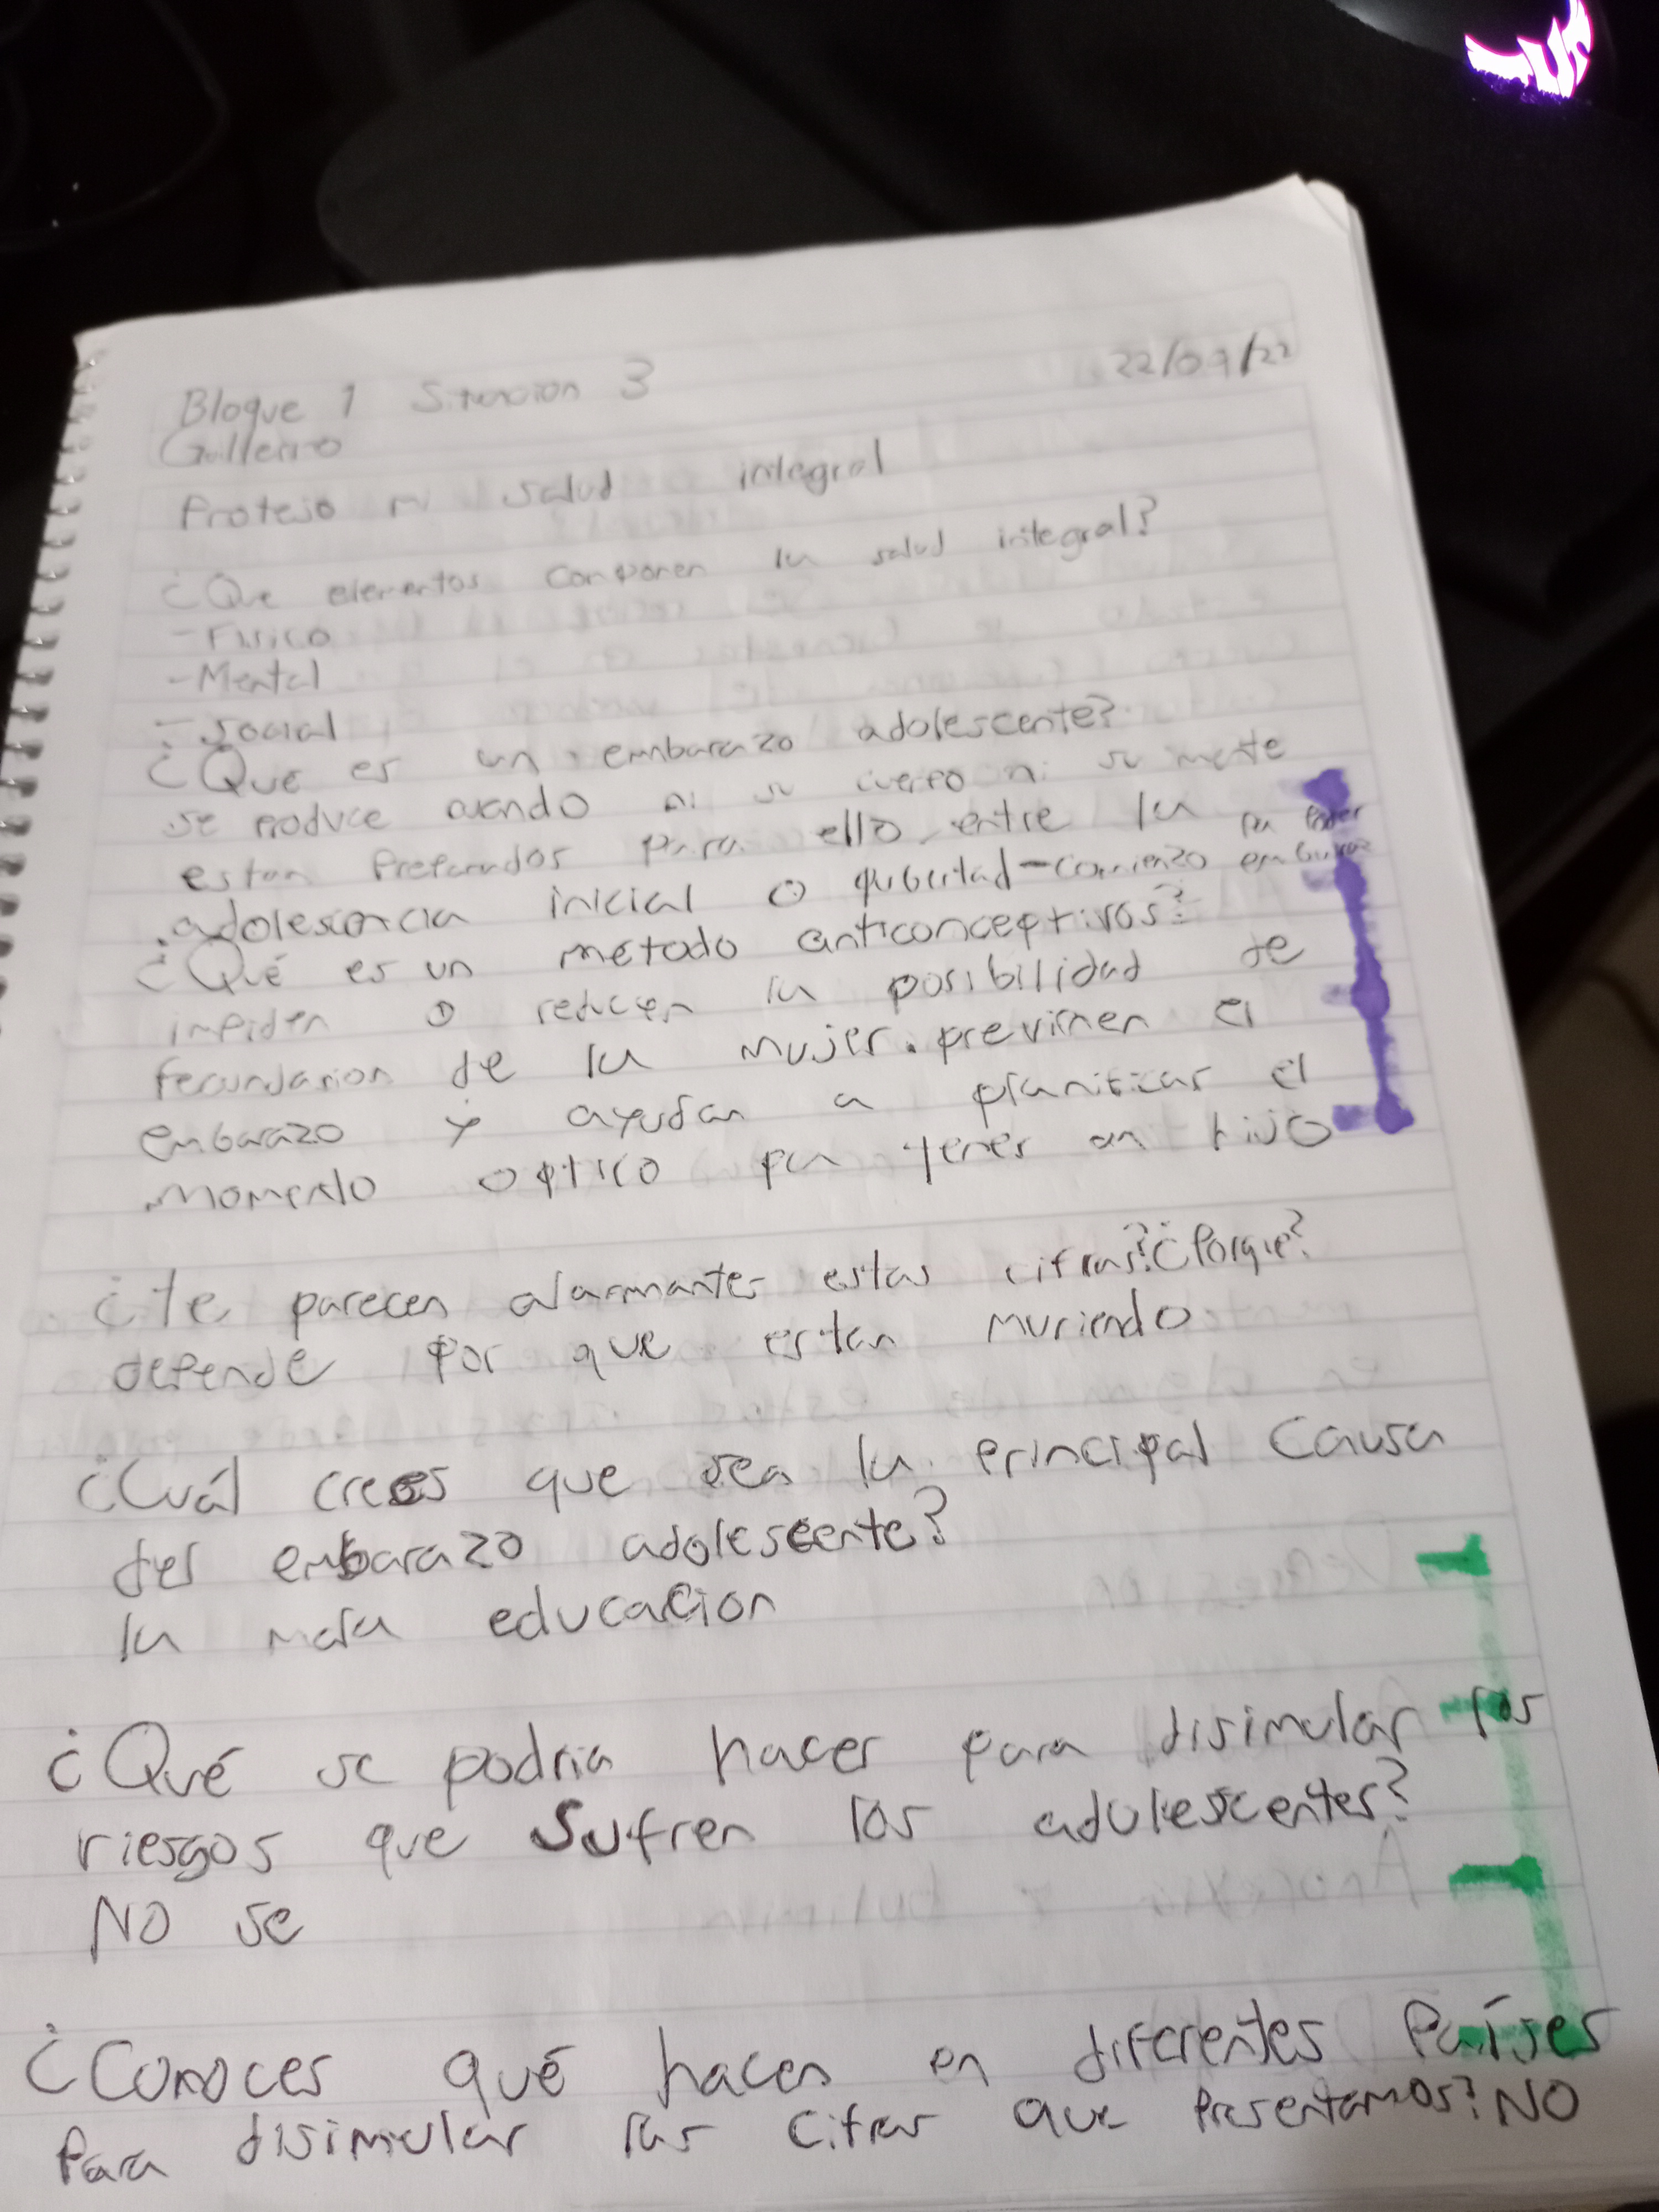 Bloque 1 Situacion 3 22/09/22
Guillermo
Protejo mi salud integral
¿Que elementos componen la salud integral?
- Fisico
- Mental
- social
¿Que es un embarazo adolescente?
se produce cuando ni su cuerpo ni su mente
estan preparados para ello, entre la
adolescencia inicial o pubertad - comienzo pa poder embaraz
¿Qué es un metodo anticonceptivos?
impiden o reducen la posibilidad de
fecundasion de la mujer. previenen el
embarazo y ayudan a planificar el
momento optico pa tener un hijo
¿te parecen alarmantes estas cifras? ¿Porque?
depende por que estan muriendo
¿Cuál crees que sea la principal causa
del embarazo adolescente?
la mala educacion
¿Qué se podria hacer para disimular los
riesgos que sufren los adolescentes?
NO se
¿Conoces qué hacen en diferentes Países
para disimular las cifras que presentamos? NO